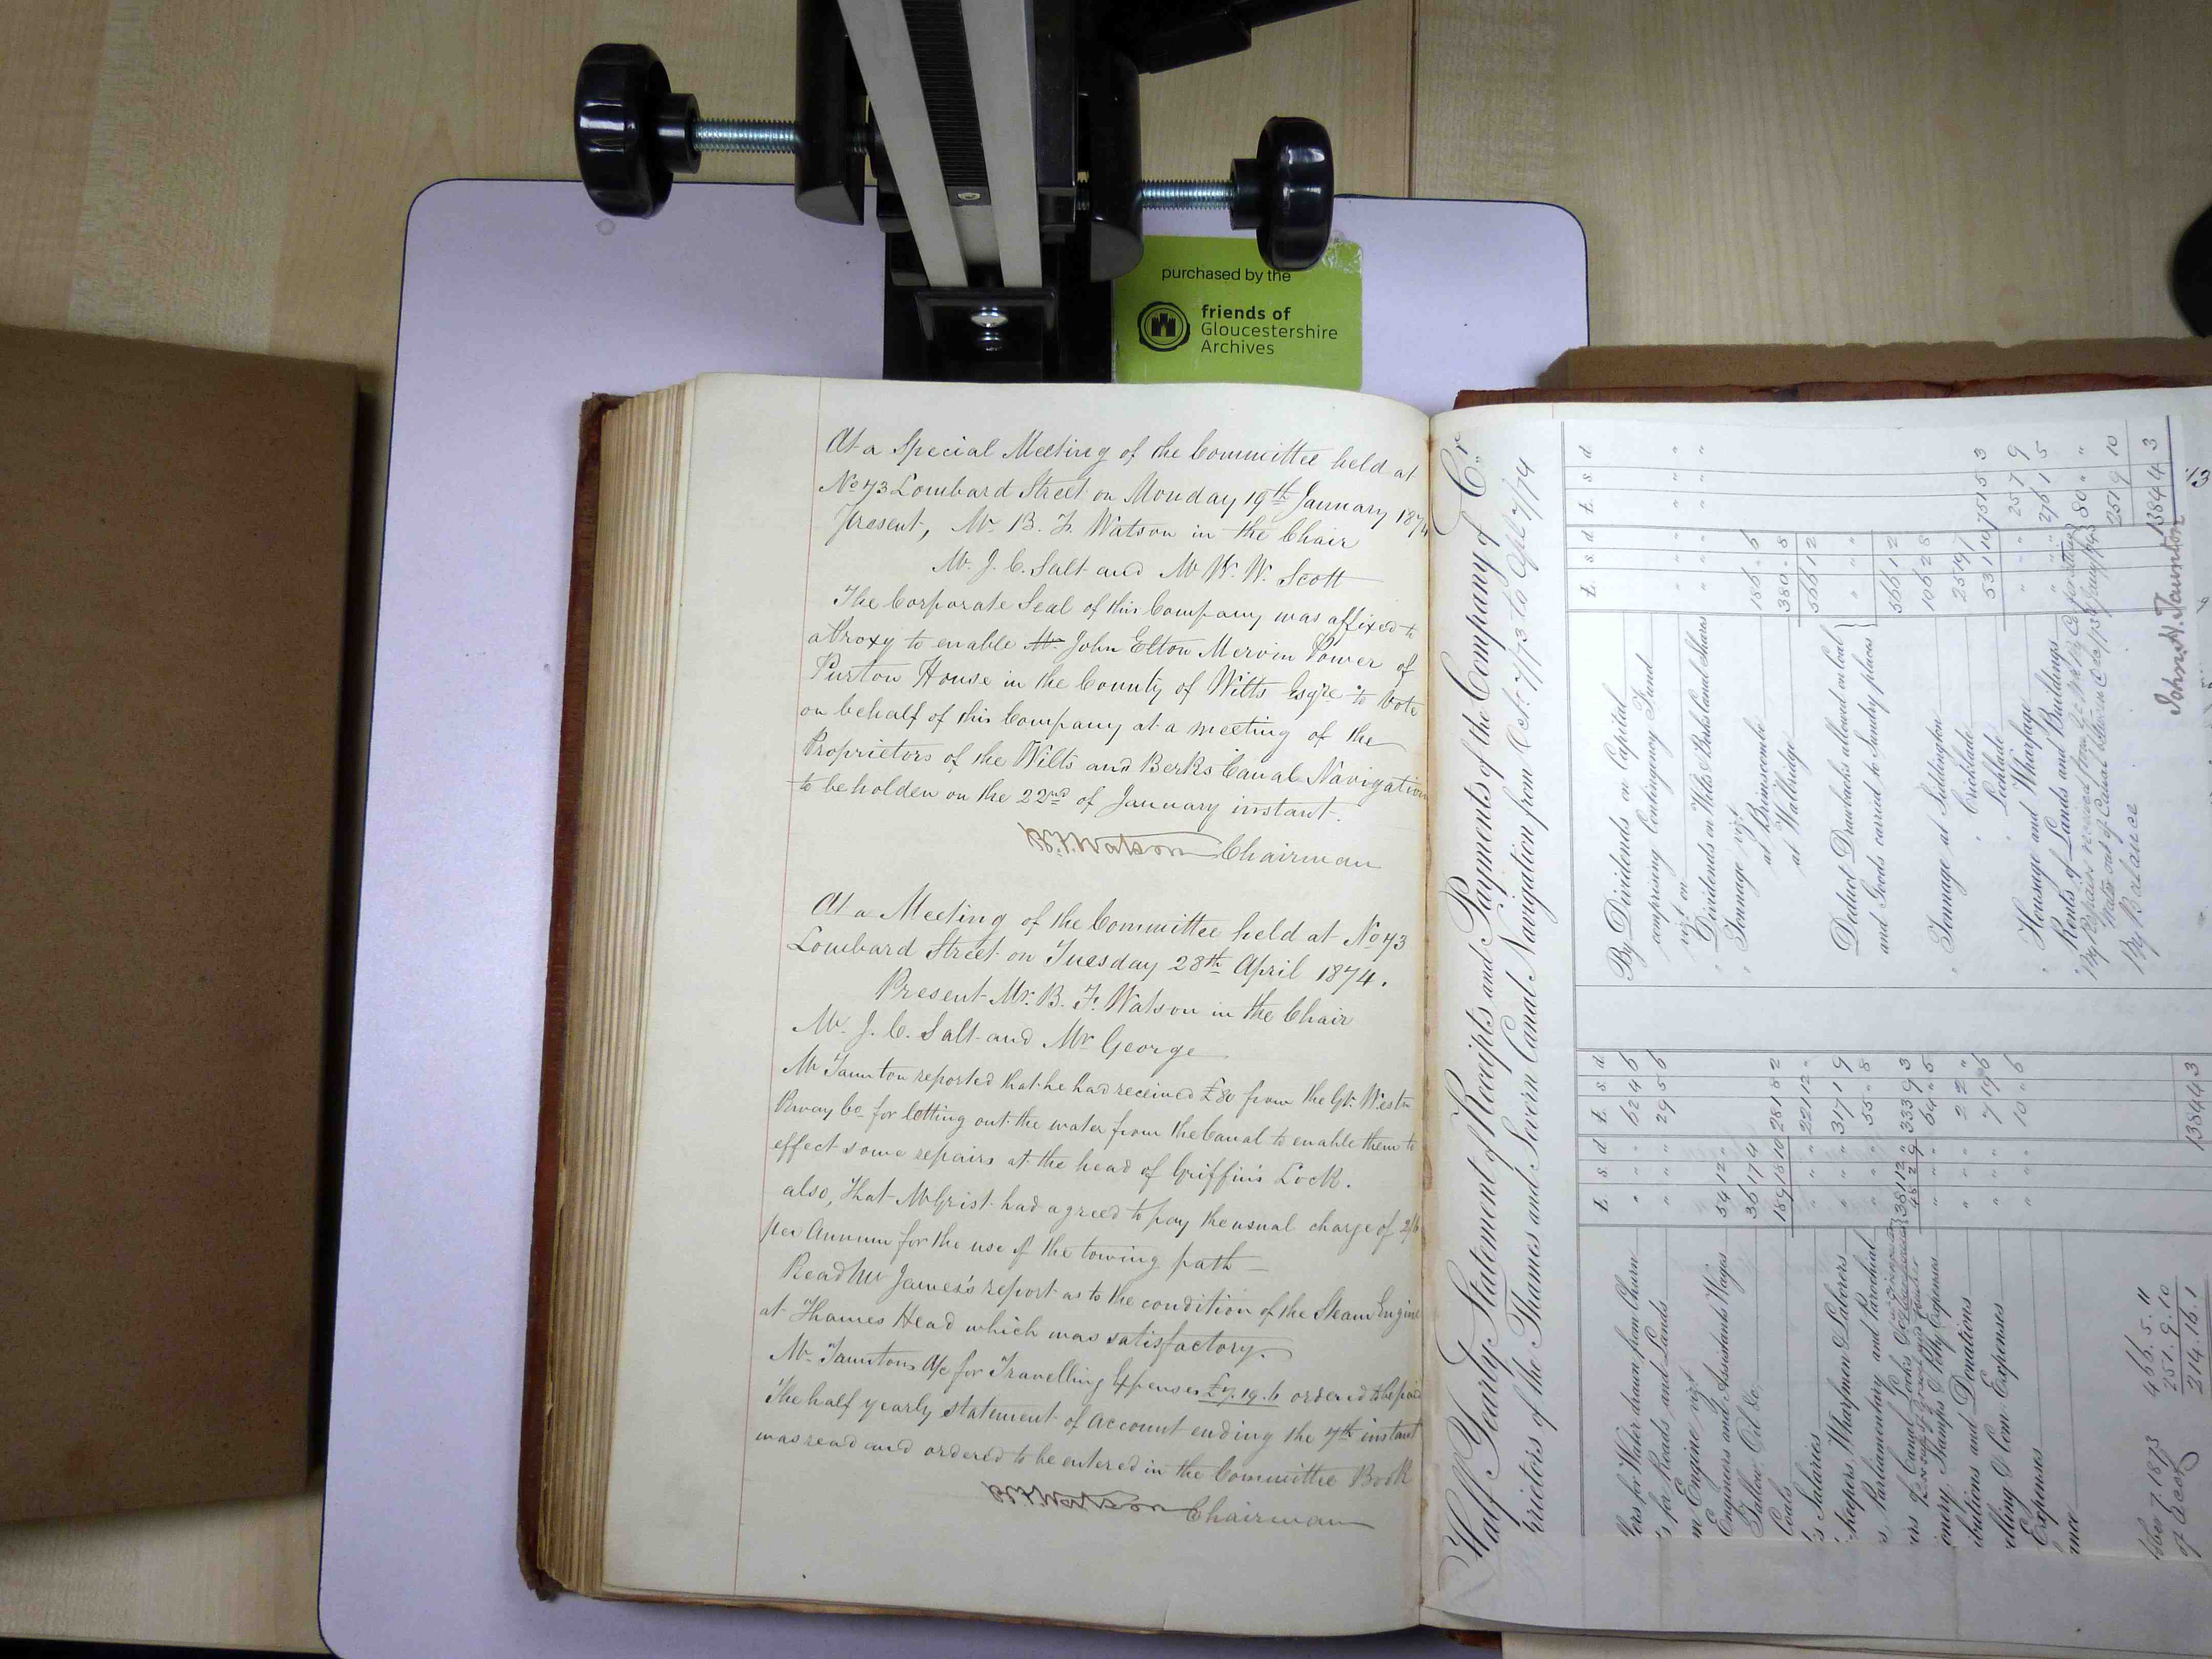 purchased by the
friends of
Gloucestershire
Archives
At a Special Meeting of the Committee held at
No 73 Lombard Street on Monday 19th January 1874
Present, Mr. B. F. Watson in the Chair
Mr. J. C. Salt and Mr W. W. Scott
The Corporate Seal of this Company was affixed to
a Proxy to enable Mr. John Elton Mervin Power of
Purton House in the County of Wilts Esqre to Vote
on behalf of this Company at a meeting of the
Proprietors of the Wilts and Berks Canal Navigation
to be holden on the 22nd of January instant.
B.F. Watson Chairman
At a Meeting of the Committee held at No 73
Lombard Street on Tuesday 28th April 1874.
Present Mr. B. F. Watson in the Chair
Mr. J. C. Salt and Mr George
Mr Taunton reported that he had received £80 from the Gt. Westn
Rway Co for letting out the water from the Canal to enable them to
effect some repairs at the head of Griffin's Lock.
also, that Mr Grist had agreed to pay the usual charge of 2/6
per Annum for the use of the towing path
Read Mr James's report as to the condition of the Steam Engine
at Thames Head which was satisfactory.
Mr. Tauntons A/c for Travelling Expenses £7.19.6 ordered to be paid
The half yearly statement of Account ending the 7th instant
was read and ordered to be entered in the Committee Book
B.F. Watson Chairman
Half Yearly Statement of Receipts and Payments of the Company of Cr
prietors of the Thames and Severn Canal Navigation from Oct. 7/73 to Apl 7/74
£ s d £ s d
for Water drawn from Churn " " 62 4 6
for Roads and Lands " " 29 5 6
Engine vizt
Engineers and Assistants Wages 54 12 "
Tallow Oil &c 36 17 4
Coals 189 18 10 281 8 2
Salaries " " 221 12 "
keepers Wharfmen & Laborers " " 317 1 9
Parliamentary and Parochial " " 55 " 8
333 9 3
Stamps & Petty Expenses " " 64 " 5
butions and Donations " " 2 2 "
elling & Com. Expenses " " 7 19 6
Expenses " " 10 " 6
1384 4 3
1873 466. 5. 11
251. 9. 10
214. 16. 1
£ s d £ s d
By Dividends on Capital
comprising Contingency Fund
vizt on
" Dividends on Wilts & Berks Canal Shares " " " "
" Tonnage vizt
at Brimscombe 186 " 6
at Wallbridge 380 " 8
566 1 2
Deduct Drawbacks allowed on Coal
and Goods carried to Sundry places " "
566 1 2
" Tonnage at Siddington 106 2 8
" Cricklade 25 19 7
" Lechlade 53 11 10 751 5 3
" Housage and Wharfage " " 25 7 9
" Rents of Lands and Buildings " " 276 1 5
80 " "
By Balance 251 9 10
1384 4 3
John H. Taunton